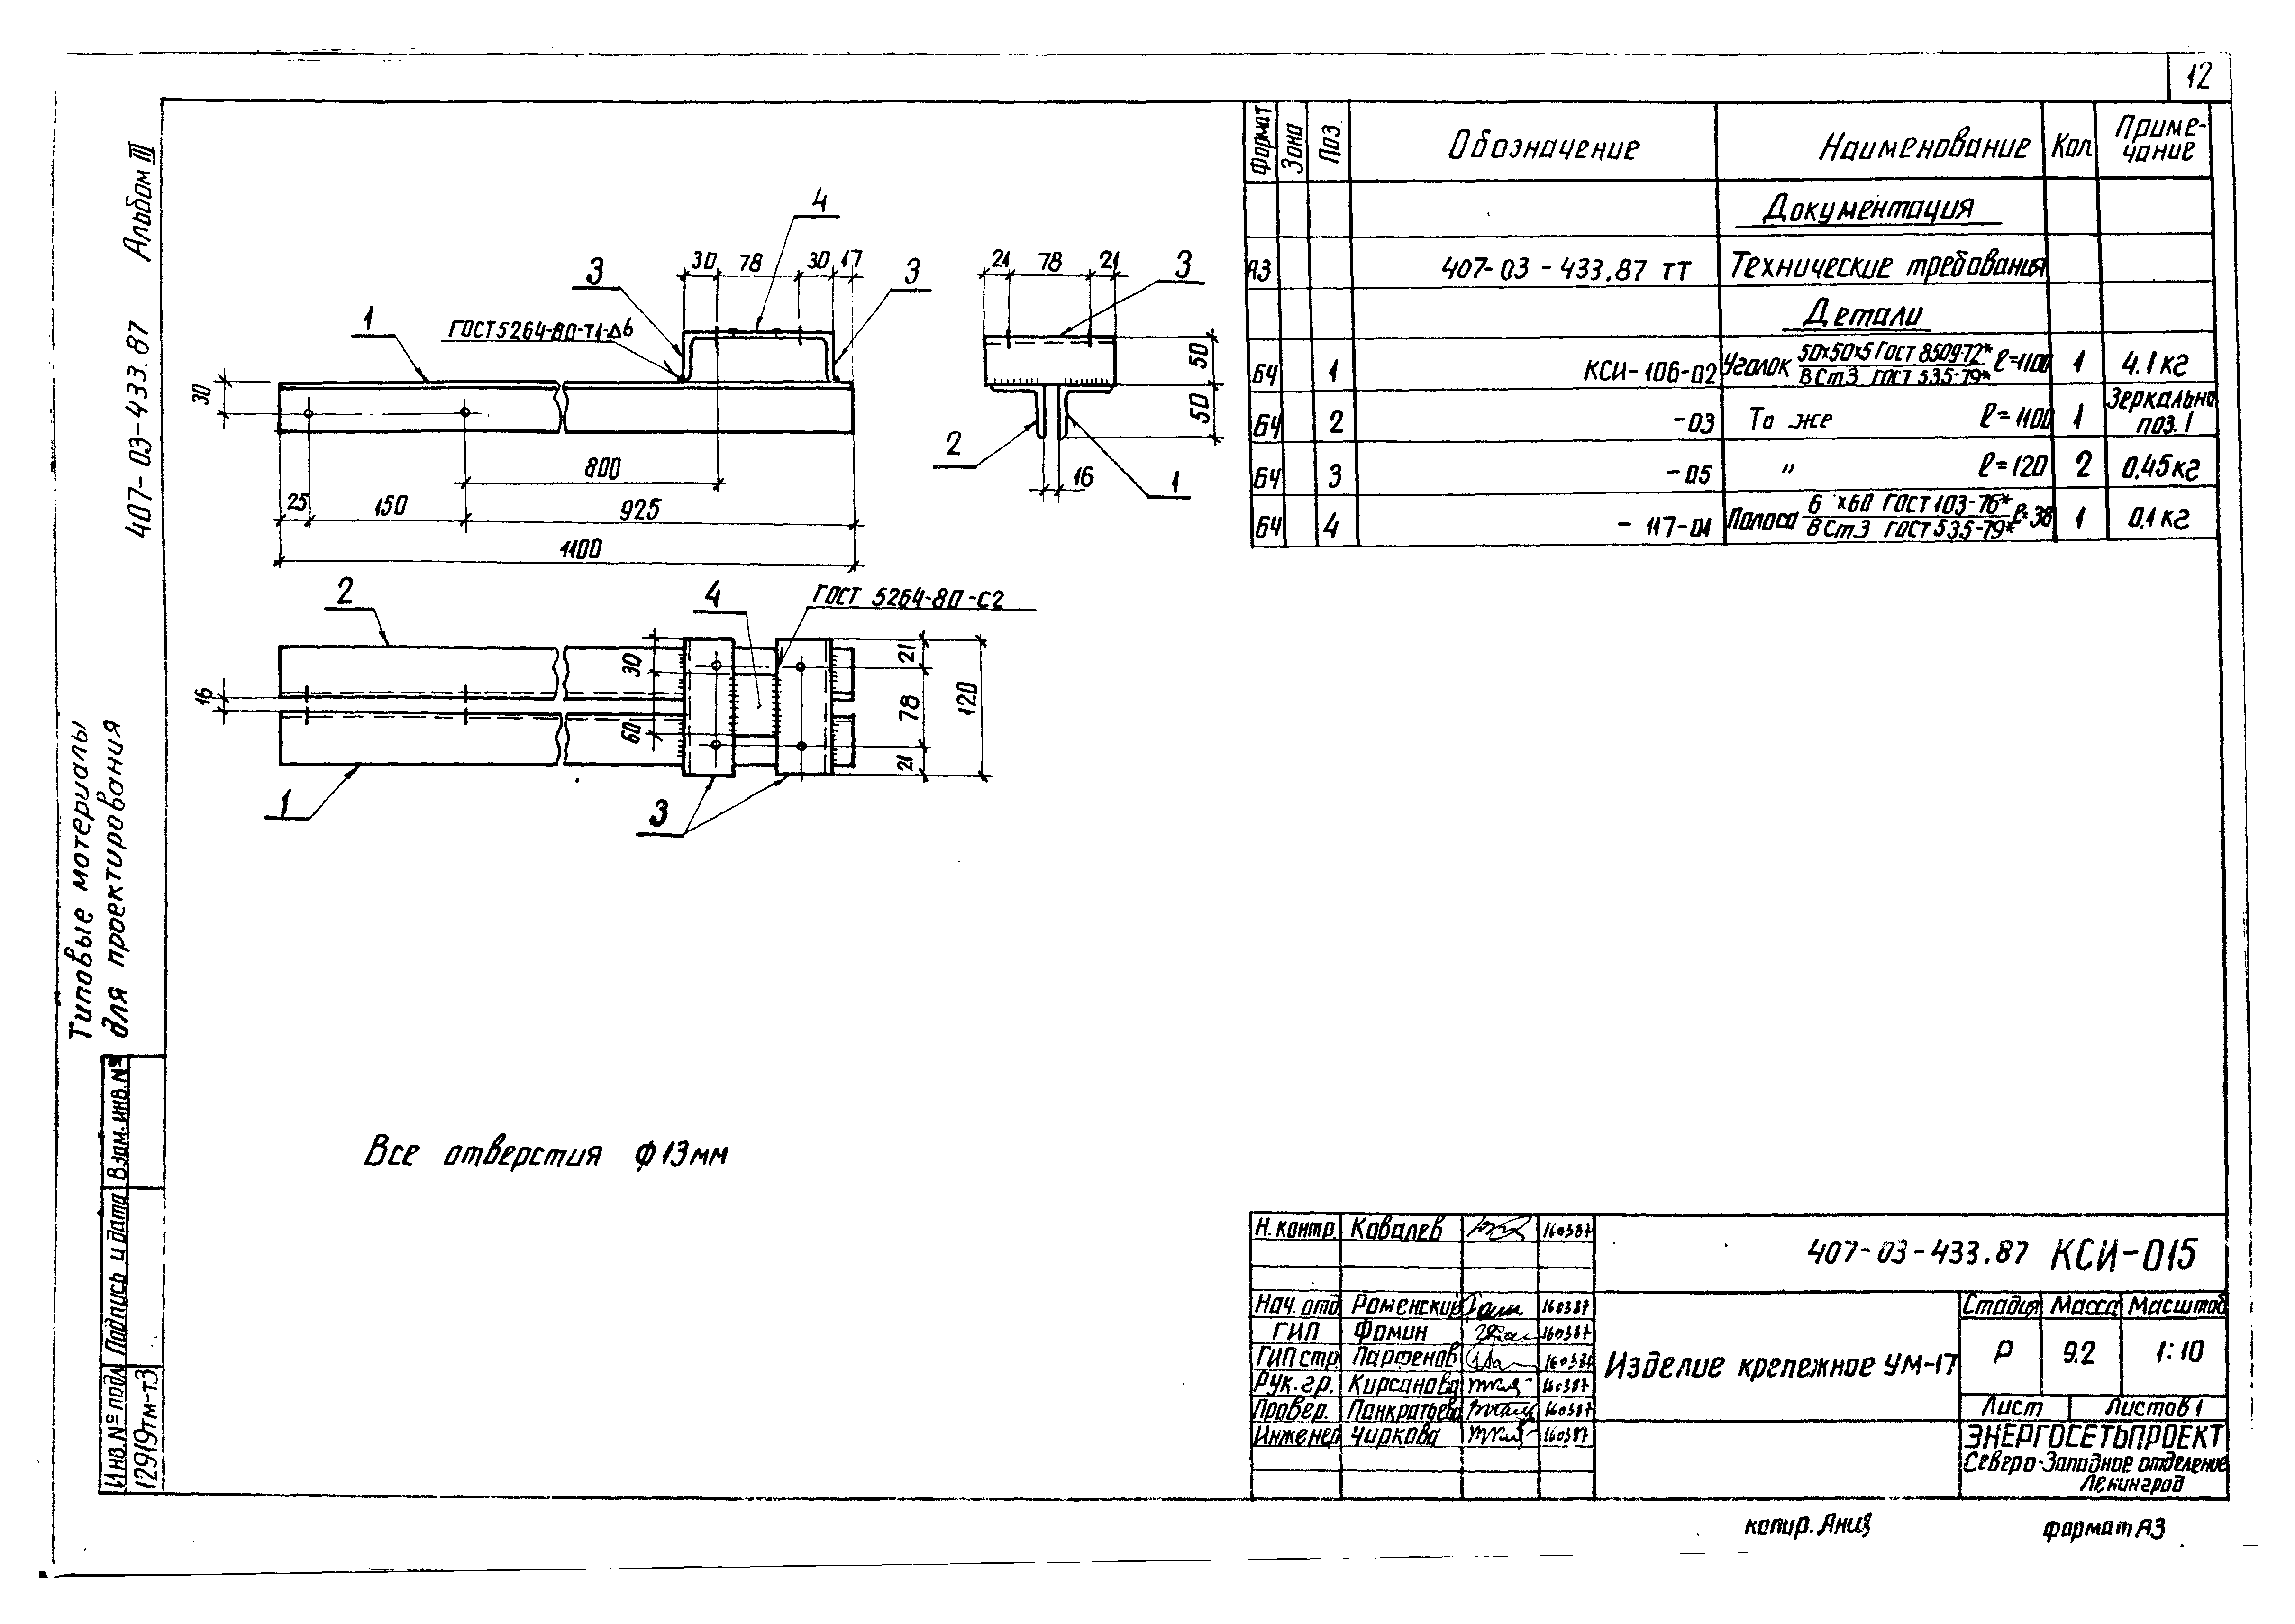 12
Альбом III
407-03-433.87
Типовые материалы
для проектирования
Взам. инв. №
Подпись и дата
Инв. № подл.
12919тм-т3
4
30 78 30 17
3
3
1
ГОСТ 5264-80-Т1-Δ6
30
800
25 150 925
1100
21 78 21
3
50
50
2
16
1
2
4
ГОСТ 5264-80-С2
16
30
60
21
78
21
120
1
3
Все отверстия ф13мм
Формат Зона Поз. Обозначение Наименование Кол. Приме-
чание
Документация
А3 407-03-433.87 ТТ Технические требования
Детали
БЧ 1 КСИ-106-02 Уголок 50х50х5 ГОСТ 8509-72* ℓ=1100 1 4.1кг
ВСт3 ГОСТ 535-79*
БЧ 2 -03 То же ℓ=1100 1 Зеркально
поз.1
БЧ 3 -05 " ℓ=120 2 0,45кг
БЧ 4 -117-01 Полоса 6 х60 ГОСТ 103-76* ℓ=38 1 0,1кг
ВСт3 ГОСТ 535-79*
Н. контр. Ковалев 160387
Нач. отд. Роменский 160387
ГИП Фомин 160387
ГИП стр. Парфенов 160387
Рук. гр. Кирсанова 160387
Провер. Панкратьева 160387
Инженер Чиркова 160387
407-03-433.87 КСИ-015
Изделие крепежное УМ-17
Стадия Масса Масштаб
Р 9.2 1:10
Лист Листов 1
ЭНЕРГОСЕТЬПРОЕКТ
Северо-Западное отделение
Ленинград
копир. Аниз
формат А3